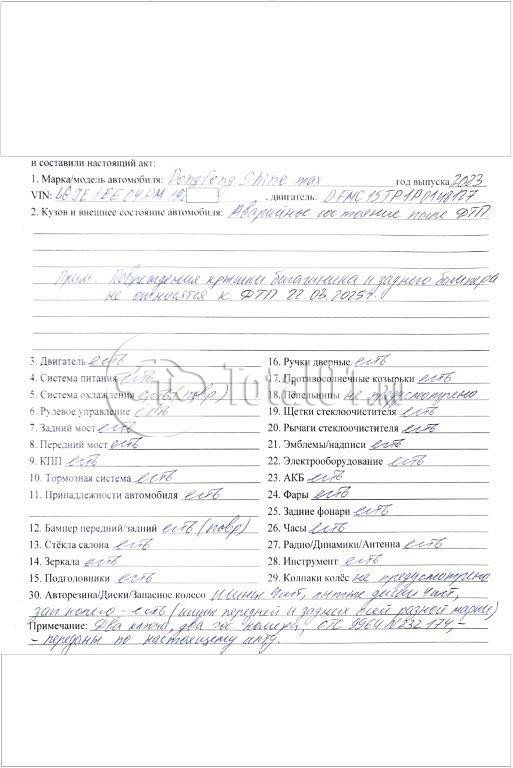 и составили настоящий акт:
1. Марка/модель автомобиля: Dongfeng Shine max год выпуска 2023
VIN: двигатель: DFMC15TP1
2. Кузов и внешнее состояние автомобиля: Аварийное состояние после ФТП
Прим. Повреждения крышки багажника и заднего бампера
не относятся к ФТП 22.03.2025г.
Total01.ru
3. Двигатель есть
4. Система питания есть
5. Система охлаждения есть (повр)
6. Рулевое управление есть
7. Задний мост есть
8. Передний мост есть
9. КПП есть
10. Тормозная система есть
11. Принадлежности автомобиля есть
12. Бампер передний/задний есть (повр)
13. Стёкла салона есть
14. Зеркала есть
15. Подголовники есть
16. Ручки дверные есть
17. Противосолнечные козырьки есть
18. Пепельницы не предусмотрено
19. Щетки стеклоочистителя есть
20. Рычаги стеклоочистителя есть
21. Эмблемы/надписи есть
22. Электрооборудование есть
23. АКБ есть
24. Фары есть
25. Задние фонари есть
26. Часы есть
27. Радио/Динамики/Антенна есть
28. Инструмент есть
29. Колпаки колёс не предусмотрено
30. Авторезина/Диски/Запасное колесо Шины 4шт, литые диски 4шт,
зап колесо - есть (шины передней и задних осей разной марки)
Примечание: Два ключа, два гос номера, СТС 9964 N232174,-
- переданы по настоящему акту.